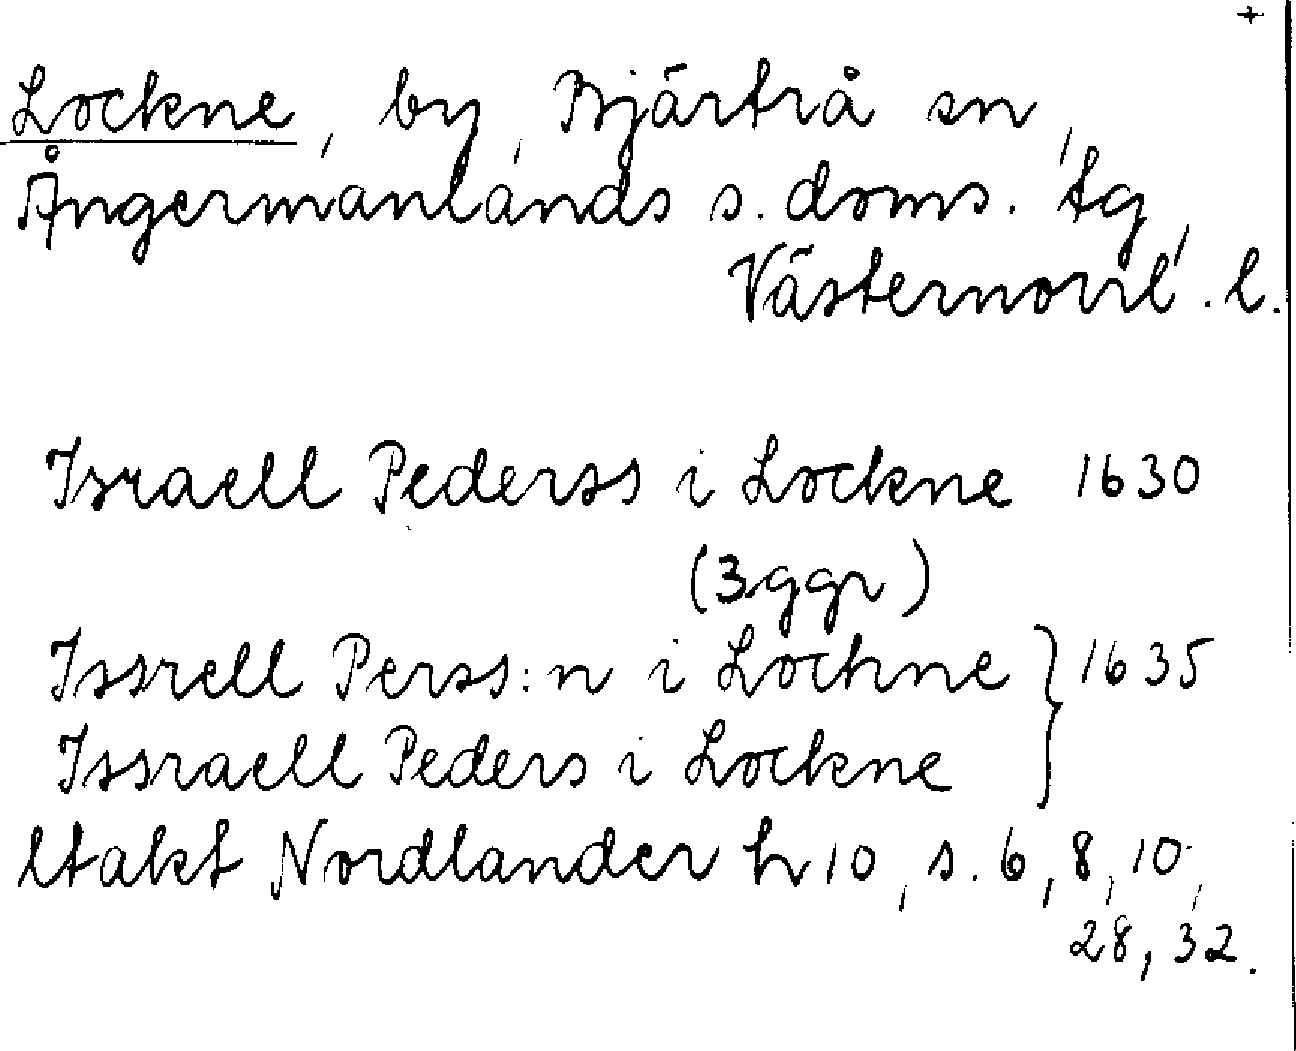 +
Lockne, by, Bjärtrå sn,
Ångermanlands s. doms. tg,
Västernorrl. l.
Israell Pederss i Lockne 1630
(3 ggr)
Issrell Perss:n i Lochne } 1635
Issraell Peders i Lockne
Utakt Nordlander h 10, s. 6, 8, 10,
28, 32.